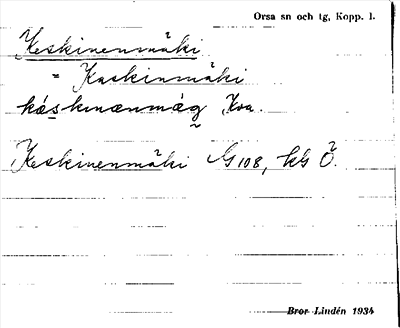 Orsa sn och tg, Kopp. l.
Keskinenmäki
= Kaskinmäki
kåskmænmæg Kva.
Keskinenmäki G 108, kG Ö.
Bror Lindén 1934